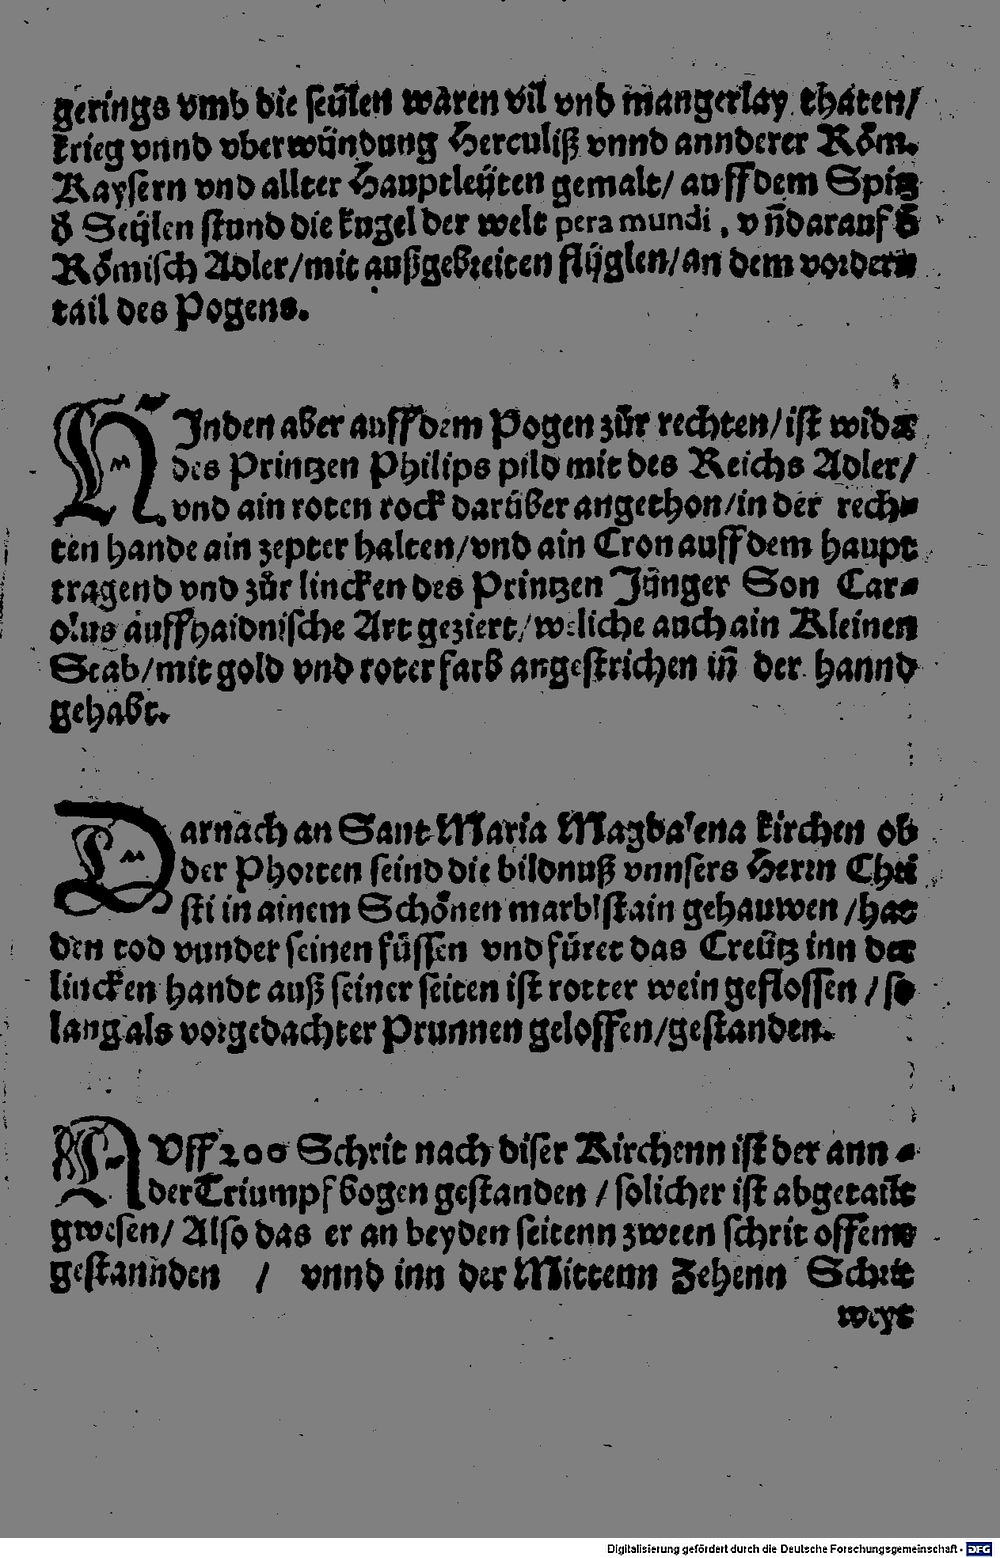 gerings vmb die seülen waren vil vnd mangerlay thaten/
krieg vnnd vberwündung Herculiß vnnd annderer Röm.
Kaysern vnd allter Hauptleüten gemalt/ auff dem Spitz
d̄ Seülen stund die kugel der welt pera mundi , v n̄darauf d̄
Römisch Adler/mit außgebreiten flüglen/an dem vordern
tail des Pogens.
HJnden aber auff dem Pogen zůr rechten/ist wider
des Printzen Philips pild mit des Reichs Adler/
vnd ain roten rock darüber angethon/in der rech⸗
ten hande ain zepter halten/vnd ain Cron auff dem haupt
tragend vnd zůr lincken des Printzen Jünger Son Car⸗
olus auff haidnische Art geziert/weliche auch ain Kleinen
Stab/mit gold vnd roter farb angestrichen in̄ der hannd
gehabt.
Darnach an Sant Maria Magdalena kirchen ob
der Phorten seind die bildnuß vnnsers Herrn Chri
sti in ainem Schönen marblstain gehauwen /hat
den tod vunder seinen füssen vnd füret das Creütz inn der
lincken handt auß seiner seiten ist rotter wein geflossen / so
lang als vorgedachter Prunnen geloffen/gestanden.
AVff 200 Schrit nach diser Kirchenn ist der ann⸗
der Triumpf bogen gestanden / solicher ist abgetailt
gwesen/ Also das er an beyden seitenn zween schrit offenn
gestannden / vnnd inn der Mittenn Zehenn Schrit
weyt
Digitalisierung gefördert durch die Deutsche Forschungsgemeinschaft - DFG